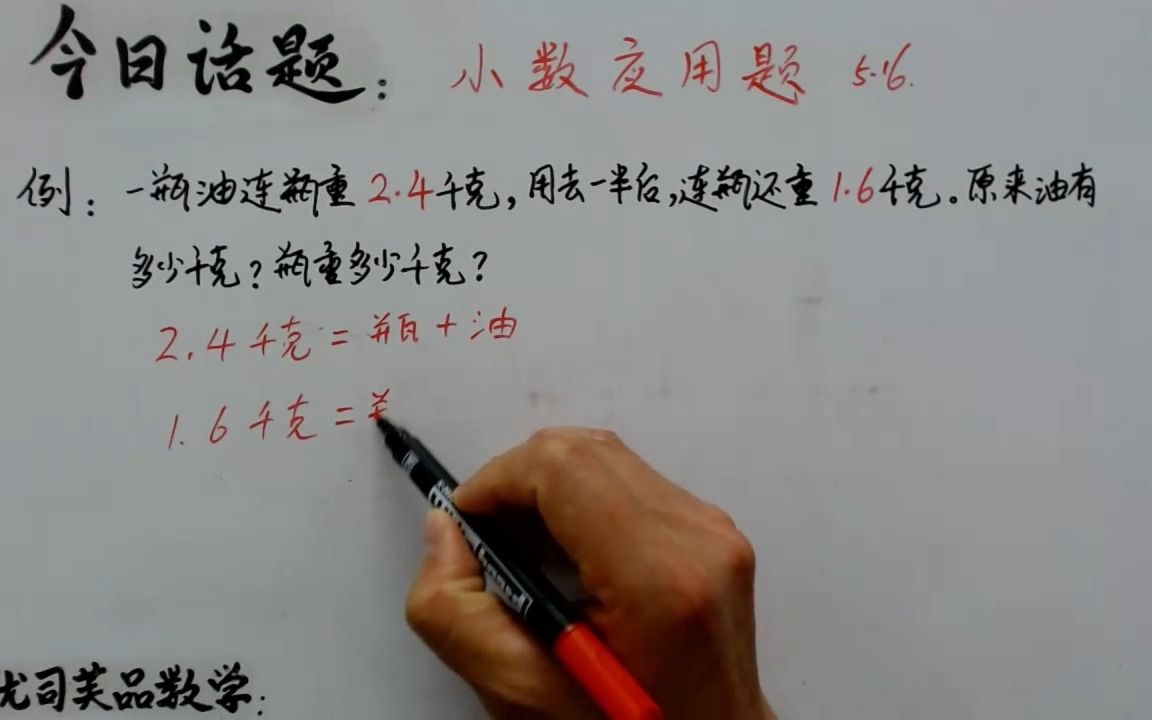 今日话题：小数应用题 5.16.
例：一瓶油连瓶重2.4千克，用去一半后，连瓶还重1.6千克。原来油有
多少千克？瓶重多少千克？
2.4千克=瓶+油
1.6千克=
尤司芙品数学：